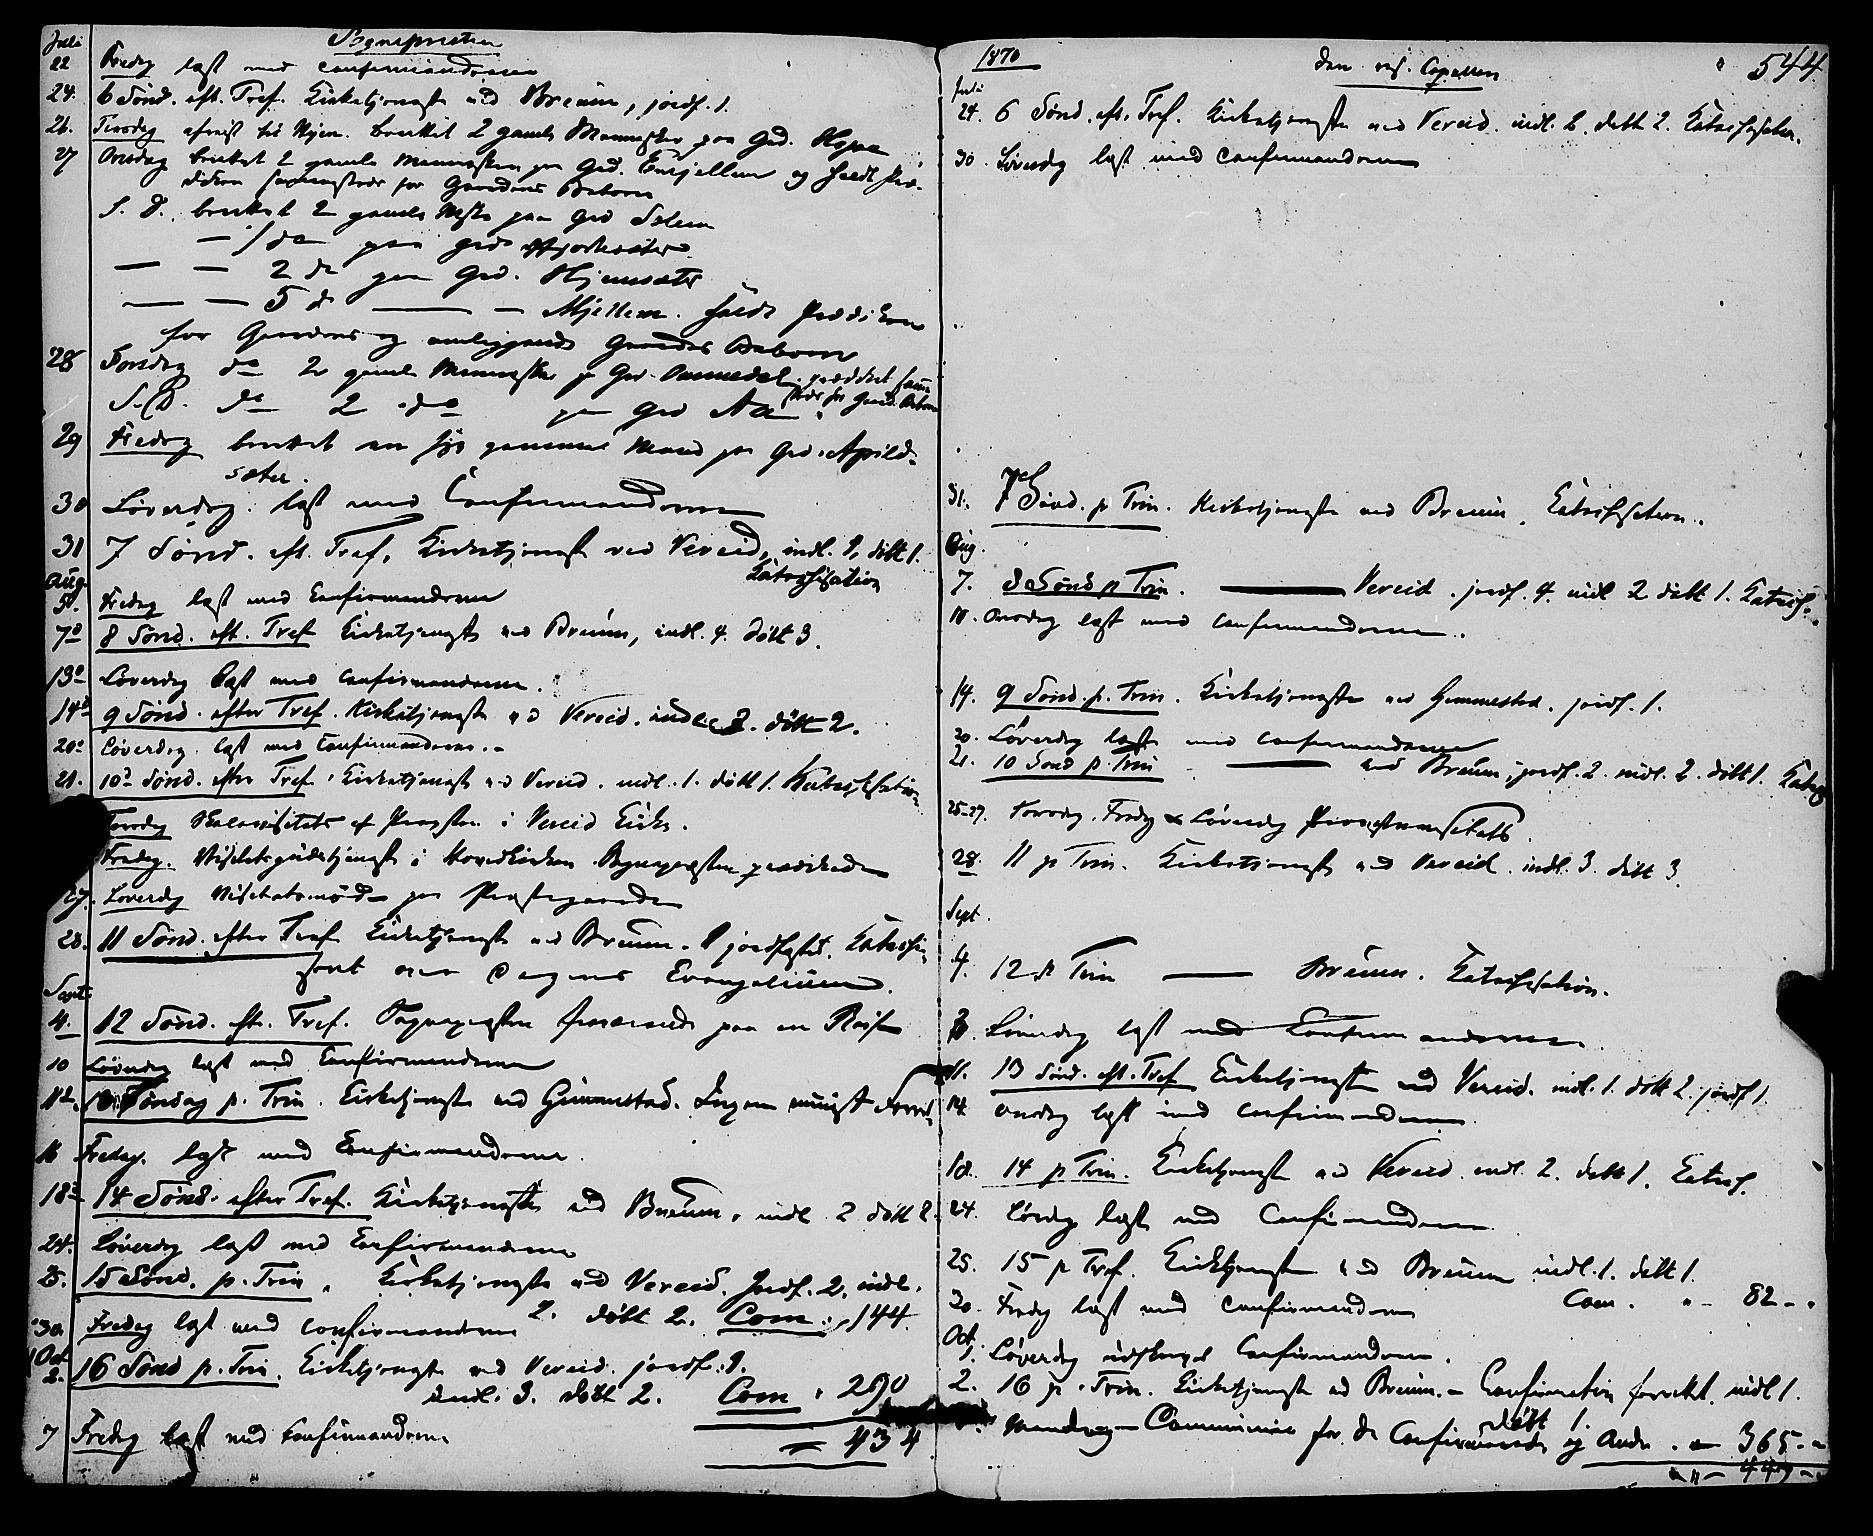 Juli
Sognepresten
22 Fredag læst med Confirmanderne
24. 6 Sønd. eft. Tref. Kirketjeneste ved Breum, jordf. 1.
26. Tirsdag afreist til Hyen. berettet 2 gamle Mennesker paa Grd. Hope
27 Onsdag berettet 2 gamle Mennesker paa Grd. og holdt Præ-
diken sammesteds for Gaardens Beboere
S. D. berettet 2 gamle Msk. paa Grd Solem
— 1 do paa Grd
— — 2 do paa Grd. Hjemsæter
— — 5 do — — Mjellem. holdt Prædiken
for Gaardens og omliggende Gaardes Beboere
28 Torsdag do 2 gamle Mennesker p Grd. Ommedal. prædiket samme-
steds for Gaard. Beboere
S. D. do 2 do paa Grd Aa.
29 Fredag berettet en syg gammel Mand paa Grd. Apild-
sæter.
30 Løverdag læst med Confirmanderne
31 7 Sønd. eft. Tref. Kirketjeneste ved Vereid, indl. 1, døbt 1.
Katechisation
Aug.
5. Fredag læst med Confirmanderne
7de 8 Sønd. eft. Tref Kirketjeneste ved Breum, indl. 4. døbt 3.
13de Løverdag læst med Confirmanderne.
14de 9 Sønd. efter Tref. Kirketjeneste ved Vereid. indl. 2. døbt 2.
20de Løverdag læst med Confirmanderne. -
21. 10de Sønd. efter Tref. Kirketjeneste ved Vereid. indl. 1. døbt 1. Katechisation
Torsdag Skolevisitats af Provsten i Vereid Kirke.
Fredag. Visitatsgudstjeneste i Hovedkirken Sognepresten prædikede
27. Løverdag Visitatsmøde paa Prestegaarden
28. 11 Sønd. efter Tref Kirketjeneste ved Breum. 1 jordfæstet. Katechi-
seret over Dagens Evangelium.
Sept
4. 12 Sønd. eft. Tref. Sognepresten fraværende paa en Reise
10 Løverdag læst med Confirmanderne
11te. 13 Søndag p. Trin. Kirketjeneste ved Gimmestad. Ingen
16 Fredag. læst med Confirmanderne.
18de 14 Sønd. efter Tref. Kirketjeneste ved Breum. indl 2 døbt 2.
24. Løverdag læst med Confirmanderne
25. 15 Sønd. p. Trin. Kirketjeneste ved Vereid. Jordf. 2. indl.
2. døbt 2. Com. 144.
30 Fredag læst med Confirmanderne
Oct
2. 16 Sønd p. Trin. Kirketjeneste ved Vereid. jordf. 1.
indl. 3. døbt 2. Com. 290
7 Fredag læst med Confirmanderne
= 434
1870
den res. Capellan
544
Juli
24. 6 Sønd. eft. Tref. Kirketjeneste ved Vereid. indl. 2. døbt 2. Katechisation.
30. Løverdag læst med Confirmanderne
31. 7de Sønd. p Trin. Kirketjeneste ved Breum. Katechisation.
Aug.
7. 8 Sønd p Trin. — Vereid. jordf. 4. indl 2 døbt 1. Katech.
10. Onsdag læst med Confirmanderne.
14. 9 Sønd. p. Trin. Kirketjeneste ved Gimmestad. jordf. 1.
20. Løverdag læst med Confirmanderne
21. 10 Sønd p. Trin — ved Breum, jordf. 2. indl. 2. døbt 1. Katech
25-27. Torsdag. Fredag & Løverdag Provstevisitats.
28. 11 p Trin. Kirketjeneste ved Vereid. indl. 3. døbt 3.
Sept.
4. 12 p Trin — Breum. Katechisation.
Løverdag læst med Confirmanderne.
11. 13 Sønd. eft. Tref Kirketjeneste ved Vereid. indl. 1. døbt 2. jordf 1.
14. Onsdag læst med Confirmanderne
18. 14 p Trin. Kirketjeneste ved Vereid. indl. 2. døbt 1. Katech.
24. Lørdag læst med Confirmanderne
25. 15 p Tref. Kirketjeneste ved Breum indl. 1. døbt 1.
Com. " - 82 - "
30. Fredag læst med Confirmanderne
Oct.
1. Løverdag Confirmanderne.
2. 16 p. Trin. Kirketjeneste ved Breum. - Confirmation forrettet. indl 1.
døbt 1.
Mandag - Communion for de Confirmerede og Andre. " - 365. -
" - 447 -